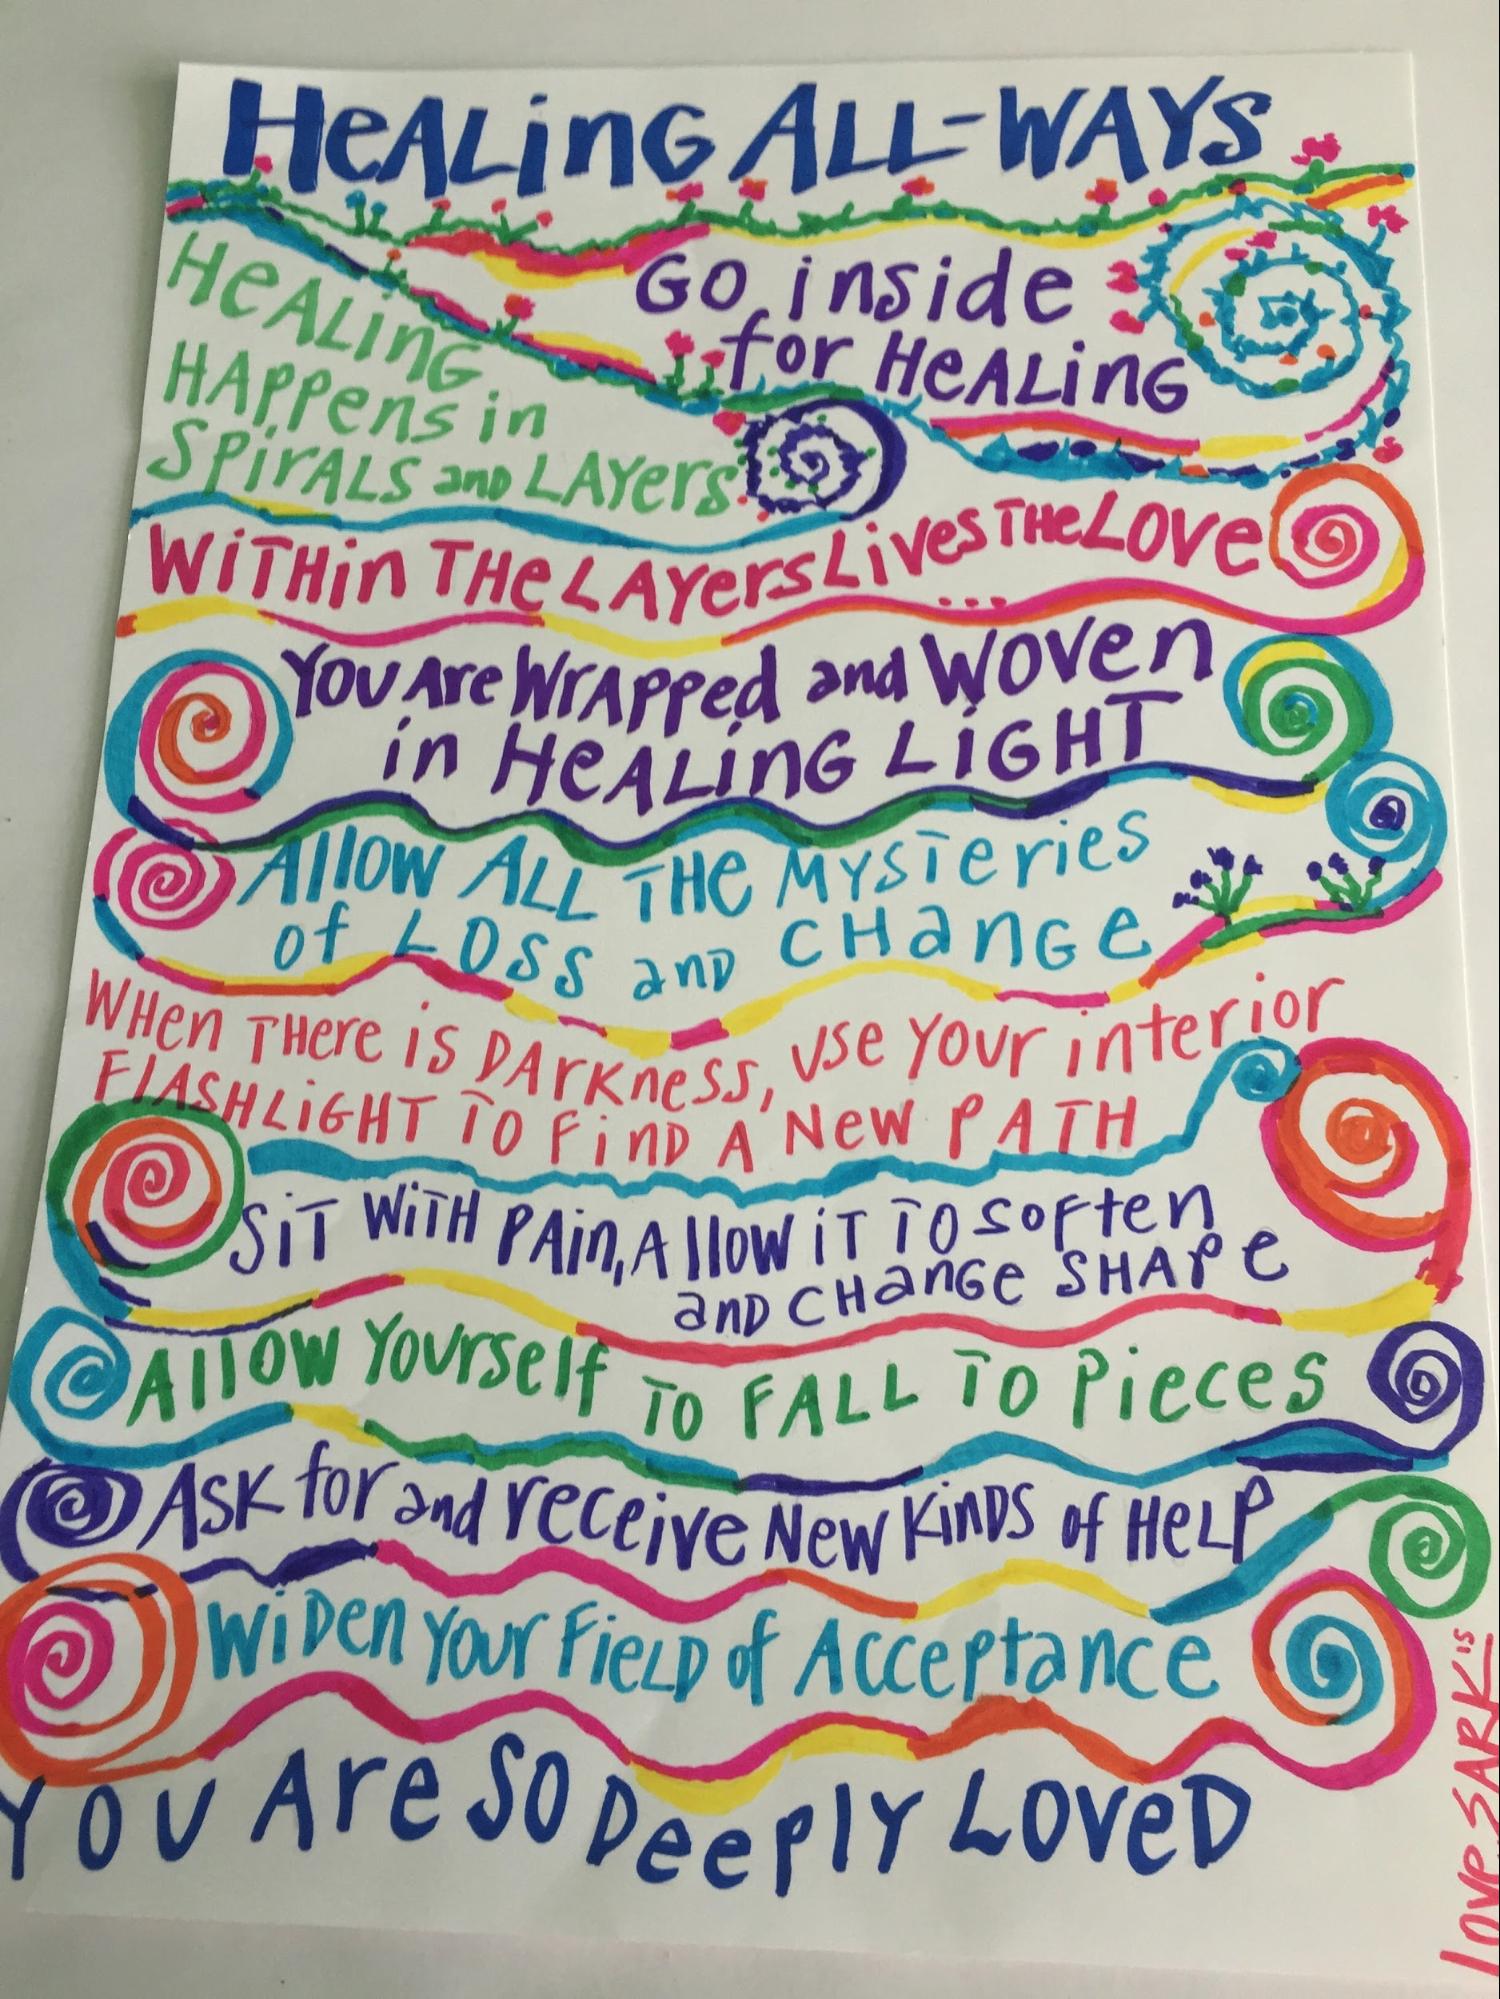 HeALing ALL-WAYS
Go inside
for HeALinG
HeALinG
HAppens in
SPirALS and LAYers
WiTHin THe LAYers Lives THe Love
...
You Are WrApped and Woven
in HeALinG LiGHT
Allow ALL THe MYSTeries
of Loss and CHanGe
WHen THere is DArKness, use your interior
FlASHLiGHT To FinD A New PATH
SiT WiTH PAin, Allow iT To soften
and CHanGe SHAPe
Allow Yourself To FALL To Pieces
ASK for and receive New KinDS of HeLP
WiDen Your FieLD of Acceptance
You Are So Deeply LoveD
Love, SARK is